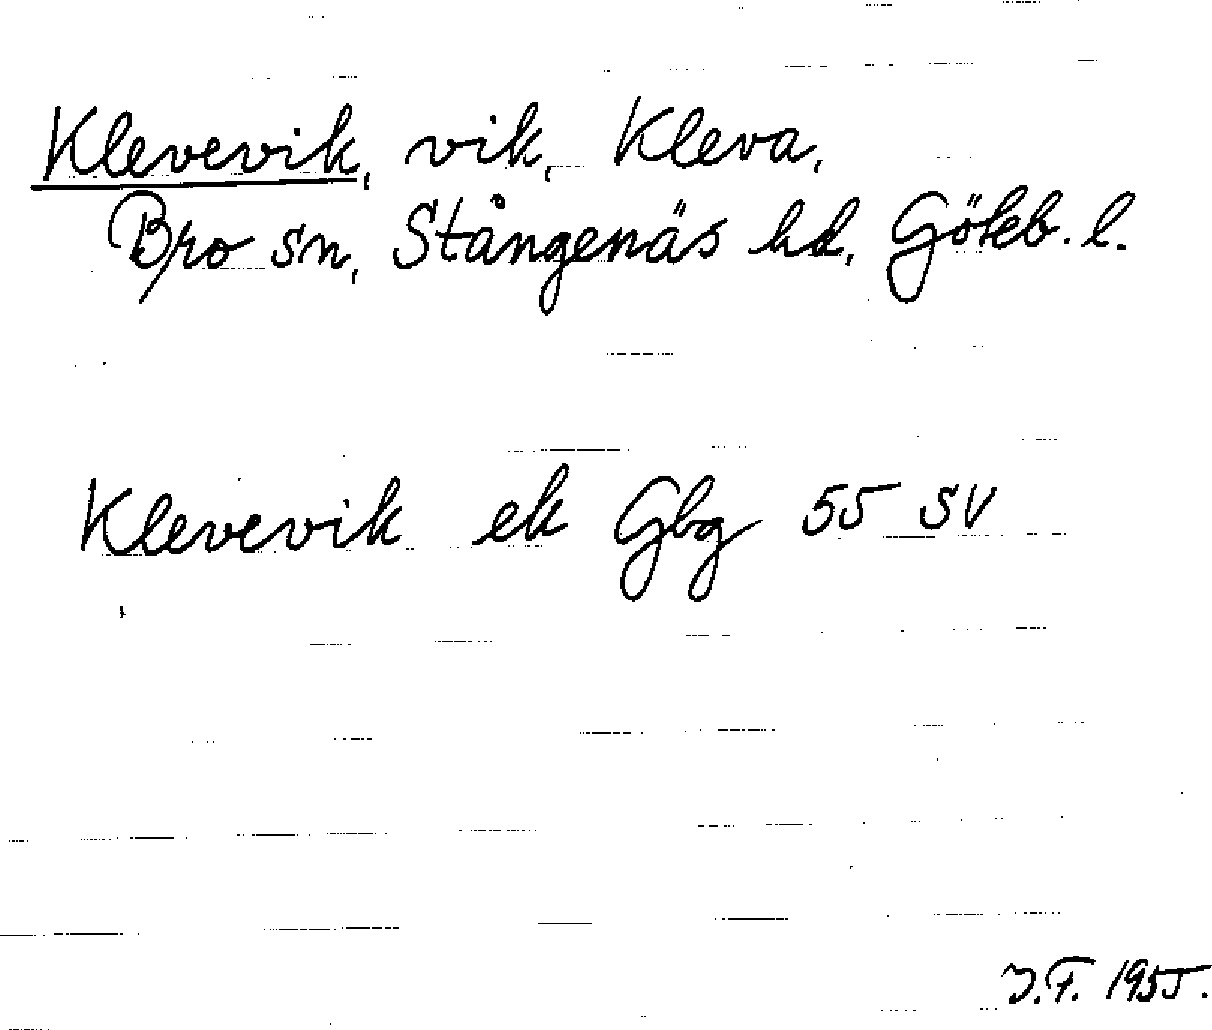 Klevevik, vik, Kleva,
Bro sn, Stångenäs hd, Göteb. l.
Klevevik ek Gbg 55 SV
J.F. 1955.